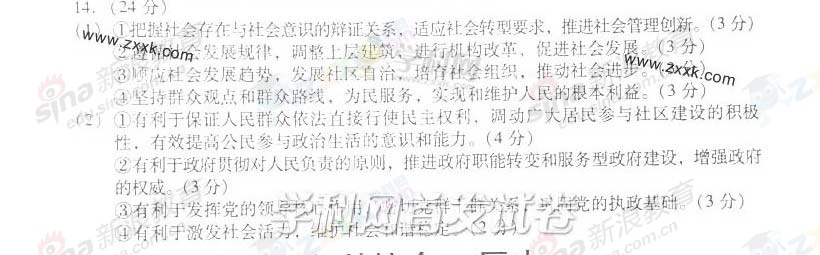 14.（24 分）
（1）①把握社会存在与社会意识的辩证关系，适应社会转型要求，推进社会管理创新。（3 分）
社会发展规律，调整上层建筑，进行机构改革，促进社会发展。（3 分）
③顺应社会发展趋势，发展社区自治，培育社会组织，推动社会进步。（3 分）
④坚持群众观点和群众路线，为民服务，实现和维护人民的根本利益。（3 分）
（2）①有利于保证人民群众依法直接行使民主权利，调动广大居民参与社区建设的积极
性，有效提高公民参与政治生活的意识和能力。（4 分）
②有利于政府贯彻对人民负责的原则，推进政府职能转变和服务型政府建设，增强政府
的权威。（3 分）
③有利于发挥党的领导 党的执政基础。（3 分）
④有利于激发社会活力，维护社会和谐稳定。（3 分）
www.zxxk.com
www.zxxk.com
学科网首发试卷
sina 新浪教育
edu.sina.com.cn